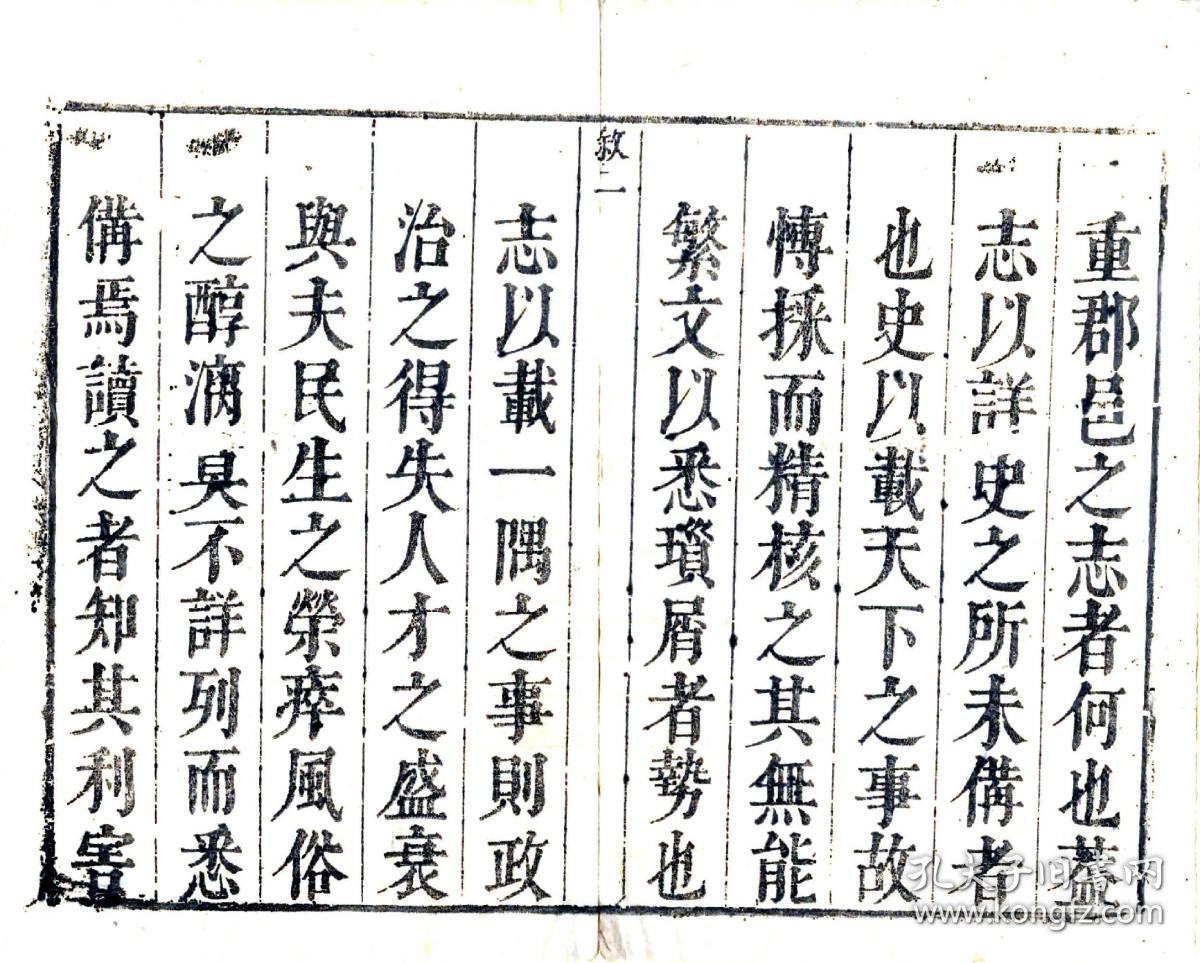 重郡邑之志者何也葢
志以詳史之所未備者
也史以載天下之事故
愽採而精核之其無能
繁文以悉瑣屑者勢也
敘二
志以載一隅之事則政
治之得失人才之盛衰
與夫民生之榮瘁風俗
之醇漓㒵不詳列而悉
備焉讀之者知其利害
孔夫子旧书网
www.kongfz.com